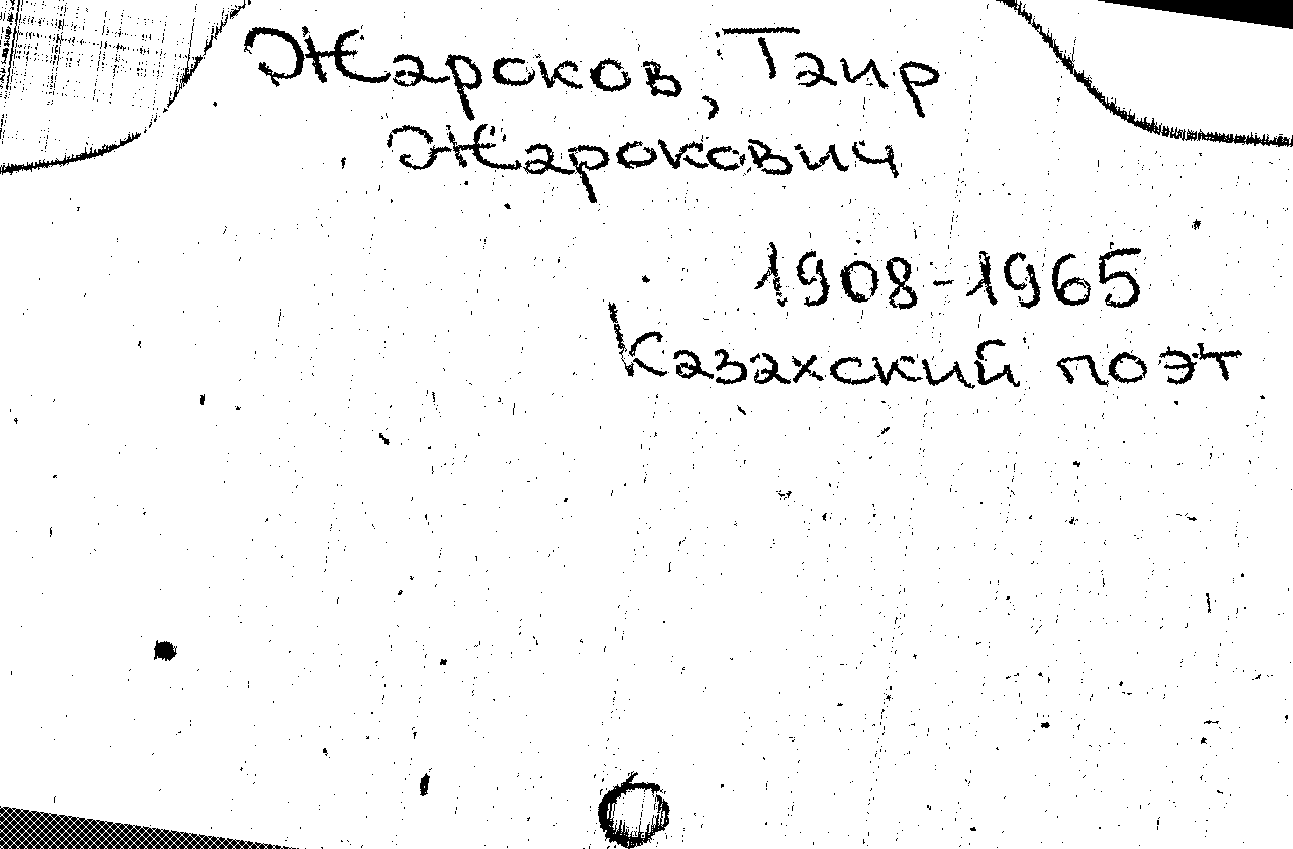 Жароков, Таир
Жарокович
1908-1965
Казахский поэт